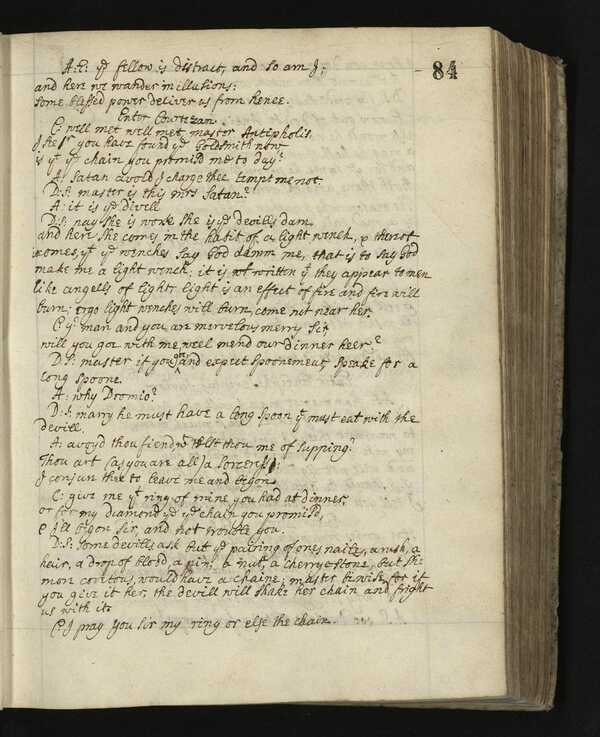 84
A:S: ye fellow is distract, and so am I;
and here we wander in illutions:
some blessed power deliver us from hence.
Enter Courtizan
C: well met well met, master Antipholis,
I see sr you have found ye Goldsmith now
is yt ye chain you promisd me to day?
A: Satan avoid, I charge thee tempt me not.
D:S: master is this mrs Satan?
A: it is ye divill
D:S: nay she is worse she is ye devills dam
and here she comes in the habit of a light wench, &
comes, yt ye wenches say God damm me, that is to say God
make me a light wench; it is written yt they appear to men
like angells of light; light is an effect of fire and fire will
burn; ergo light wenches will burn, come not near her.
C: yr man and you are mervelous merry Sir
will you goe with me, weel mend our dinner heer?
D:S: master if you do and expect spoonemeat, speake for a
long spoone.
A: why Dromio?
D:S: marry he must have a long spoon yt must eat with the
devill.
A: avoyd thou fiend, wt telst thou me of supping?
Thou art (as you are all) a sorceress:
I conjure thee to leave me and begon
C: give me ye ring of mine you had at dinner,
or for my diamond ye chain you promisd,
& Ill begon sir, and not trouble you.
D:S: some devills ask but ye pairing of ones naile, a rush, a
hair, a drop of blood, a pin, a nut, a cherrystone, but she
mon covitous, would have a chaine; master bewise, for if
you give it her, the devill will shake her chain and fright
us with it.
C: I pray you sir my ring or else the chain.